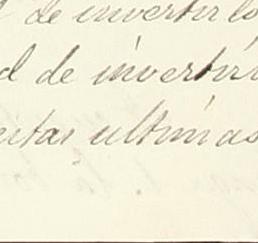 de invertir lo
d de invertir
estas ultimas